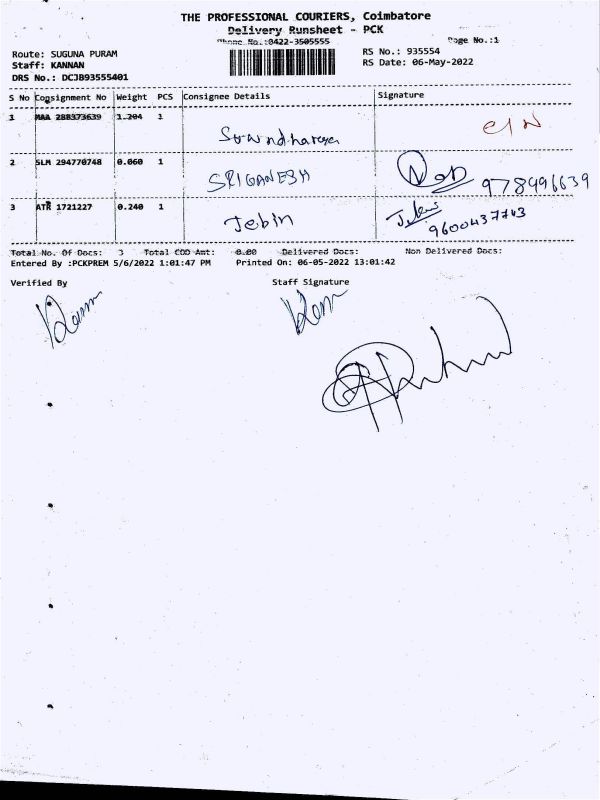 THE PROFESSIONAL COURIERS, Coimbatore
Delivery Runsheet - PCK
Phone No.:0422-3505555 Page No.:1
Route: SUGUNA PURAM RS No.: 935554
Staff: KANNAN RS Date: 06-May-2022
DRS No.: DCJB93555401
S No Consignment No Weight PCS Consignee Details Signature
1 MAA 288373639 1.204 1
2 SLM 294770748 0.060 1 SRIGANESH 9789916639
3 ATR 1721227 0.240 1 Jebin 9600437743
Total No. Of Docs: 3 Total COD Amt: 0.00 Delivered Docs: Non Delivered Docs:
Entered By :PCKPREM 5/6/2022 1:01:47 PM Printed On: 06-05-2022 13:01:42
Verified By Staff Signature